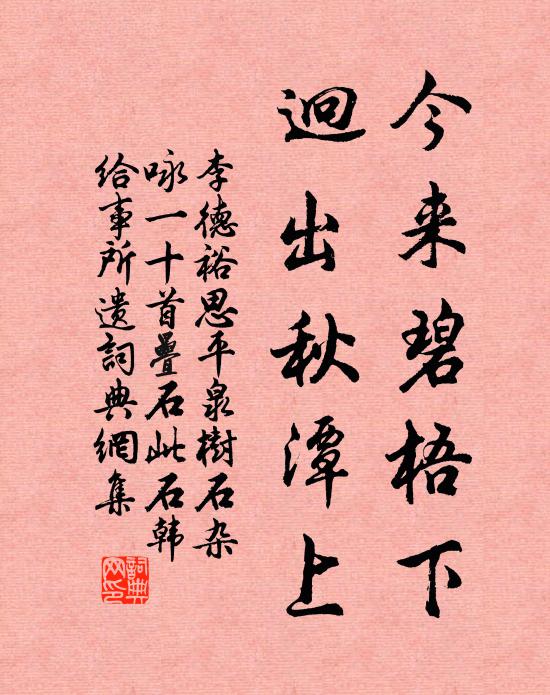 今来碧梧下
迥出秋潭上
李德裕思平泉樹石杂
咏一十首疊石此石韩
给事所遗詞典網集
詞典网印